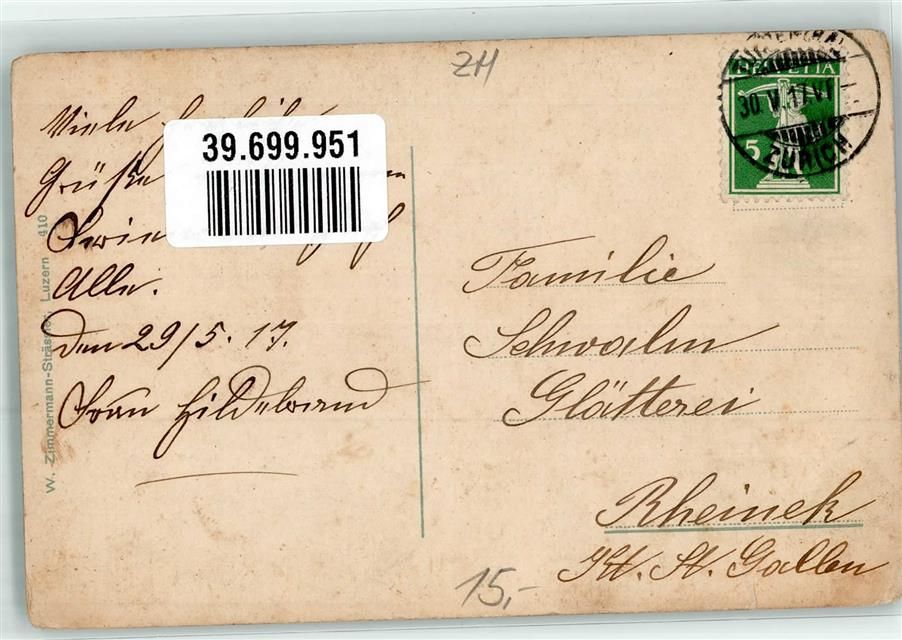 ZH
Viele
Grüße
Alle.
den 29/5.17.
Frau Hildebrand
39.699.951
W. Zimmermann-Strässle, Luzern 410
HELVETIA
5
30.V.17.VI
ZÜRICH
Familie
Schwalm
Glätterei
Rheinek
Kt. St. Gallen
15,-